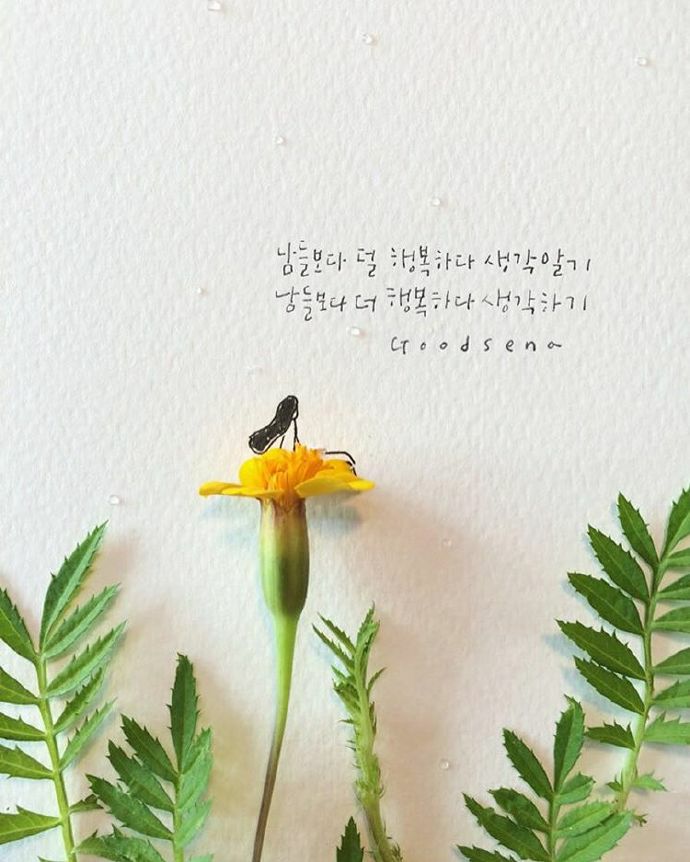 남들보다 덜 행복하다 생각말기
남들보다 더 행복하다 생각하기
Goodsena